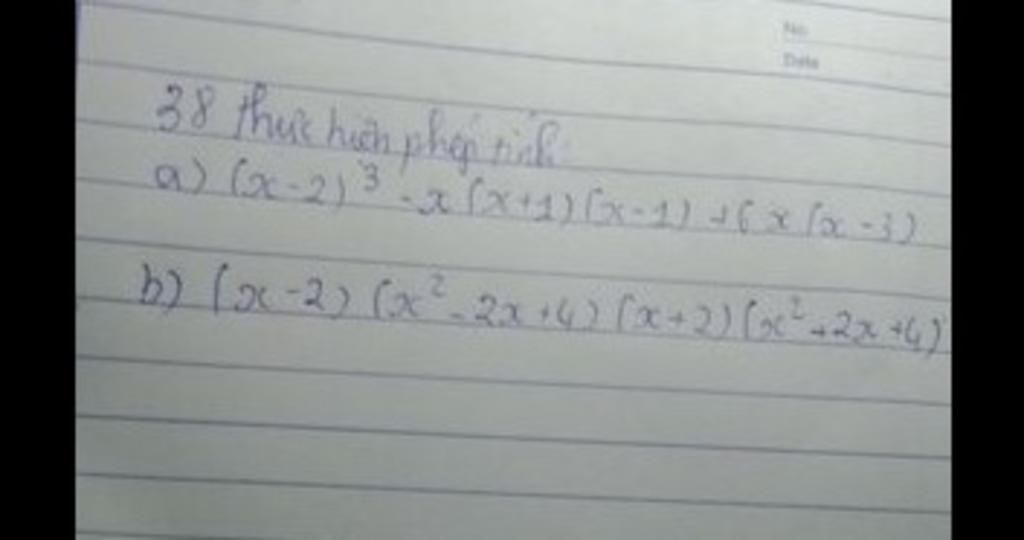 No
Date
38 thực hiện phép tính:
a) (x-2)³ - x(x+1)(x-1) + 6x(x-3)
b) (x-2)(x²-2x+4)(x+2)(x²+2x+4)